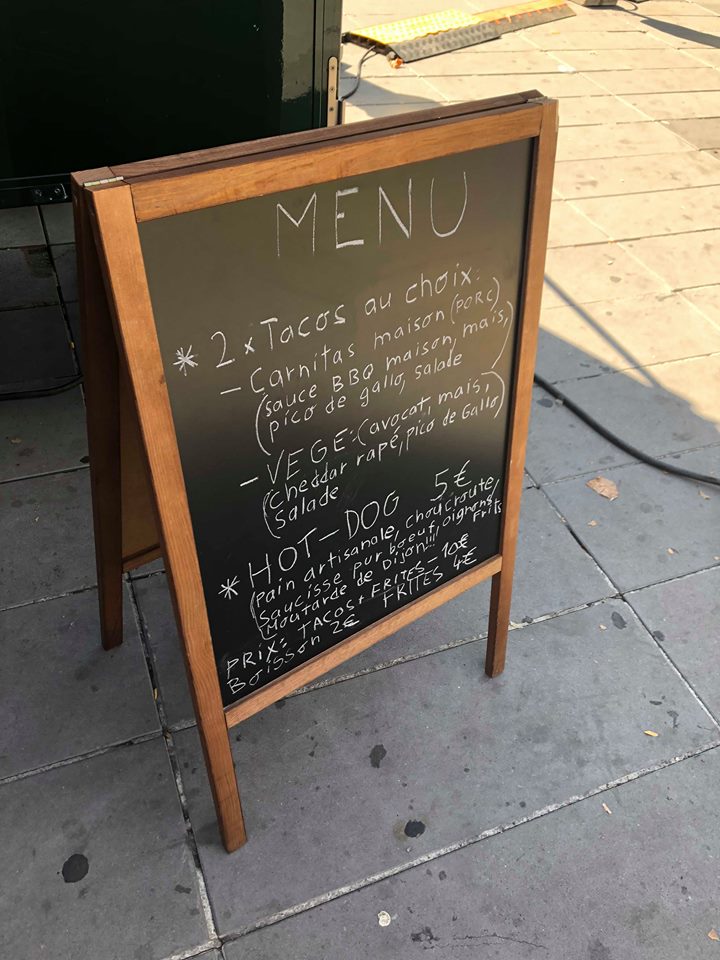 MENU
* 2 x Tacos au choix:
- Carnitas maison (PORC)
(sauce BBQ maison, maïs,
pico de gallo, salade)
- VEGE: (avocat, maïs,
(Cheddar rapé, pico de Gallo)
Salade
* HOT-DOG 5€
(Pain artisanale, choucroute,
Saucisse pur bœuf, oignons Frits
(Moutarde de Dijon!!!
PRIX: TACOS + FRITES - 10€
Boisson 2€ FRITES 4€